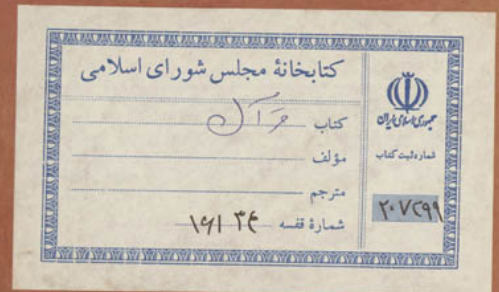 کتابخانهٔ مجلس شورای اسلامی
کتاب
مؤلف
مترجم
شمارهٔ قفسه ۱۶۱۳۴
جمهوری اسلامی ایران
شماره ثبت کتاب
۲۰۷۲۹۹